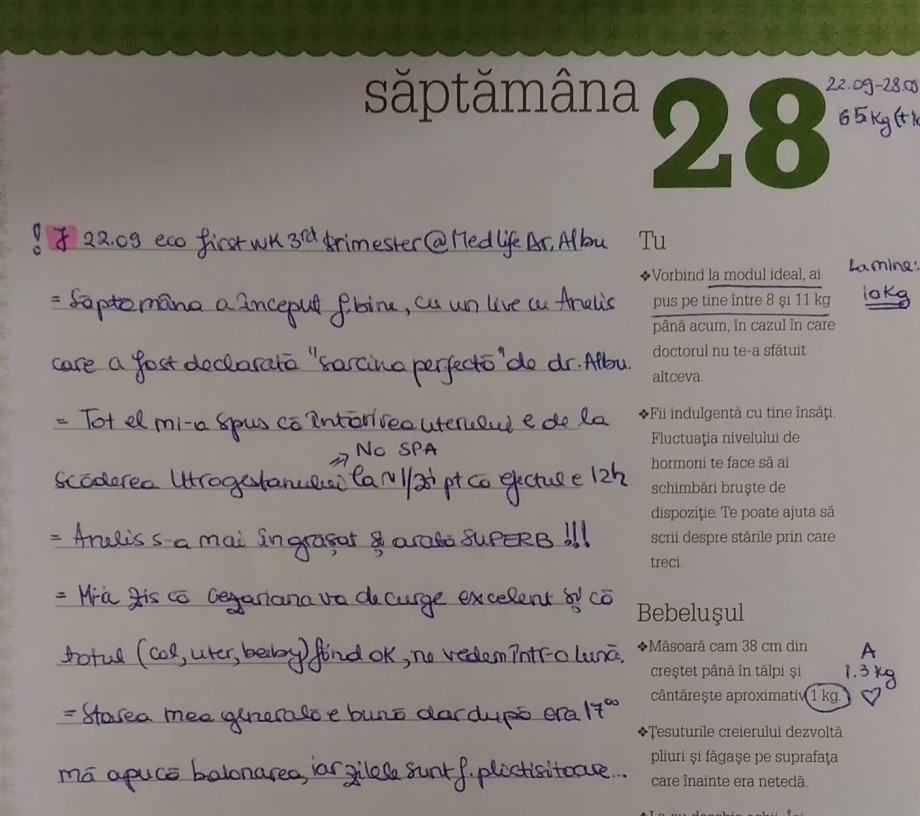 săptămâna 28
22.09-28.0
65kg (+1
! J 22.09 eco first WK 3rd trimester @ Medlife Dr. Albu
= Săptămâna a început f. bine, cu un live cu Anelis
care a fost declarată "sarcina perfectă" de dr. Albu.
= Tot el mi-a spus că întărirea uterului e de la
⇒ No SPA
scăderea Utrogestanului la ~1/zi pt că efectul e 12h
= Anelis s-a mai îngrășat și arată SUPERB !!!
= Mi-a zis că cezariana va decurge excelent și că
totul (col, uter, baby) fiind OK, ne vedem într-o lună.
= Starea mea generală e bună dar după ora 17⁰⁰
mă apucă balonarea, iar zilele sunt f. plictisitoare...
Tu
❖Vorbind la modul ideal, ai
pus pe tine între 8 și 11 kg
până acum, în cazul în care
doctorul nu te-a sfătuit
altceva.
La mine:
10Kg
❖Fii indulgentă cu tine însăți.
Fluctuația nivelului de
hormoni te face să ai
schimbări bruște de
dispoziție. Te poate ajuta să
scrii despre stările prin care
treci.
Bebelușul
❖Măsoară cam 38 cm din
creștet până în tălpi și
cântărește aproximativ 1 kg.
A
1.3 kg
♡
❖Țesuturile creierului dezvoltă
pliuri și făgașe pe suprafața
care înainte era netedă.